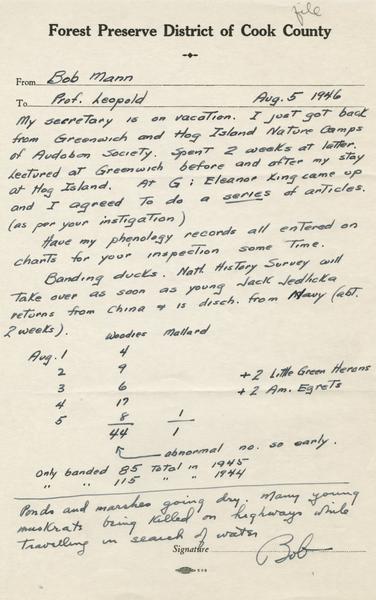 file
Forest Preserve District of Cook County
From Bob Mann
To Prof. Leopold Aug. 5 1946
My secretary is on vacation. I just got back
from Greenwich and Hog Island Nature Camps
of Audobon Society. Spent 2 weeks at latter.
Lectured at Greenwich before and after my stay
at Hog Island. At G; Eleanor King came up
and I agreed to do a series of articles.
(as per your instigation)
Have my phenology records all entered on
charts for your inspection some time.
Banding ducks. Natl. History Survey will
take over as soon as young Jack Jedlicka
returns from China & is disch. from Navy (abt.
2 weeks).
Woodies Mallard
Aug. 1 4
2 9 + 2 Little Green Herons
3 6 + 2 Am. Egrets
4 17
5 8 1
44 1
abnormal no. so early.
Only banded 85 Total in 1945
" " 115 " " 1944
Ponds and marshes going dry. Many young
muskrats being killed on highways while
travelling in search of water
Signature Bob